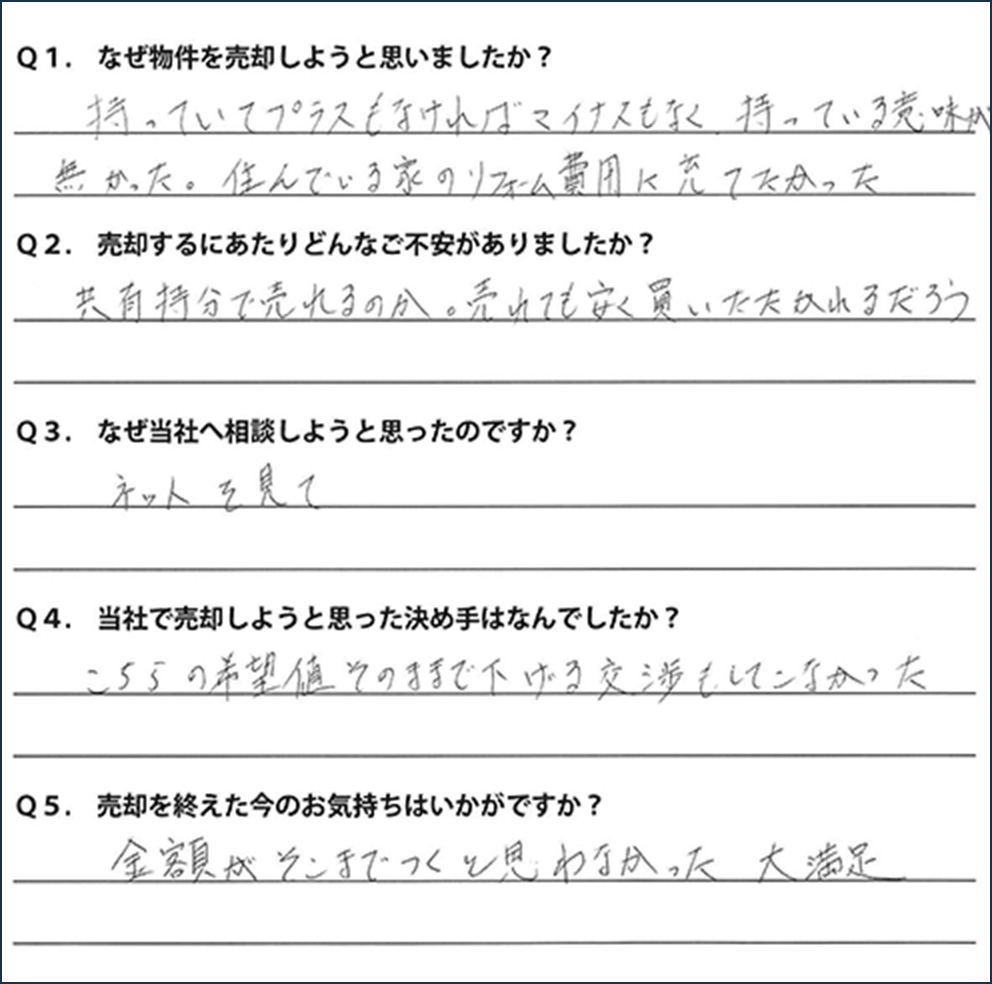 Q1. なぜ物件を売却しようと思いましたか?
持っていてプラスもなければマイナスもなく、持っている意味が
無かった。住んでいる家のリフォーム費用に充てたかった
Q2. 売却するにあたりどんなご不安がありましたか?
共有持分で売れるのか。売れても安く買いたたかれるだろう
Q3. なぜ当社へ相談しようと思ったのですか?
ネットを見て
Q4. 当社で売却しようと思った決め手はなんでしたか?
こちらの希望値そのままで下げる交渉もしてこなかった
Q5. 売却を終えた今のお気持ちはいかがですか?
金額がそこまでつくと思わなかった 大満足